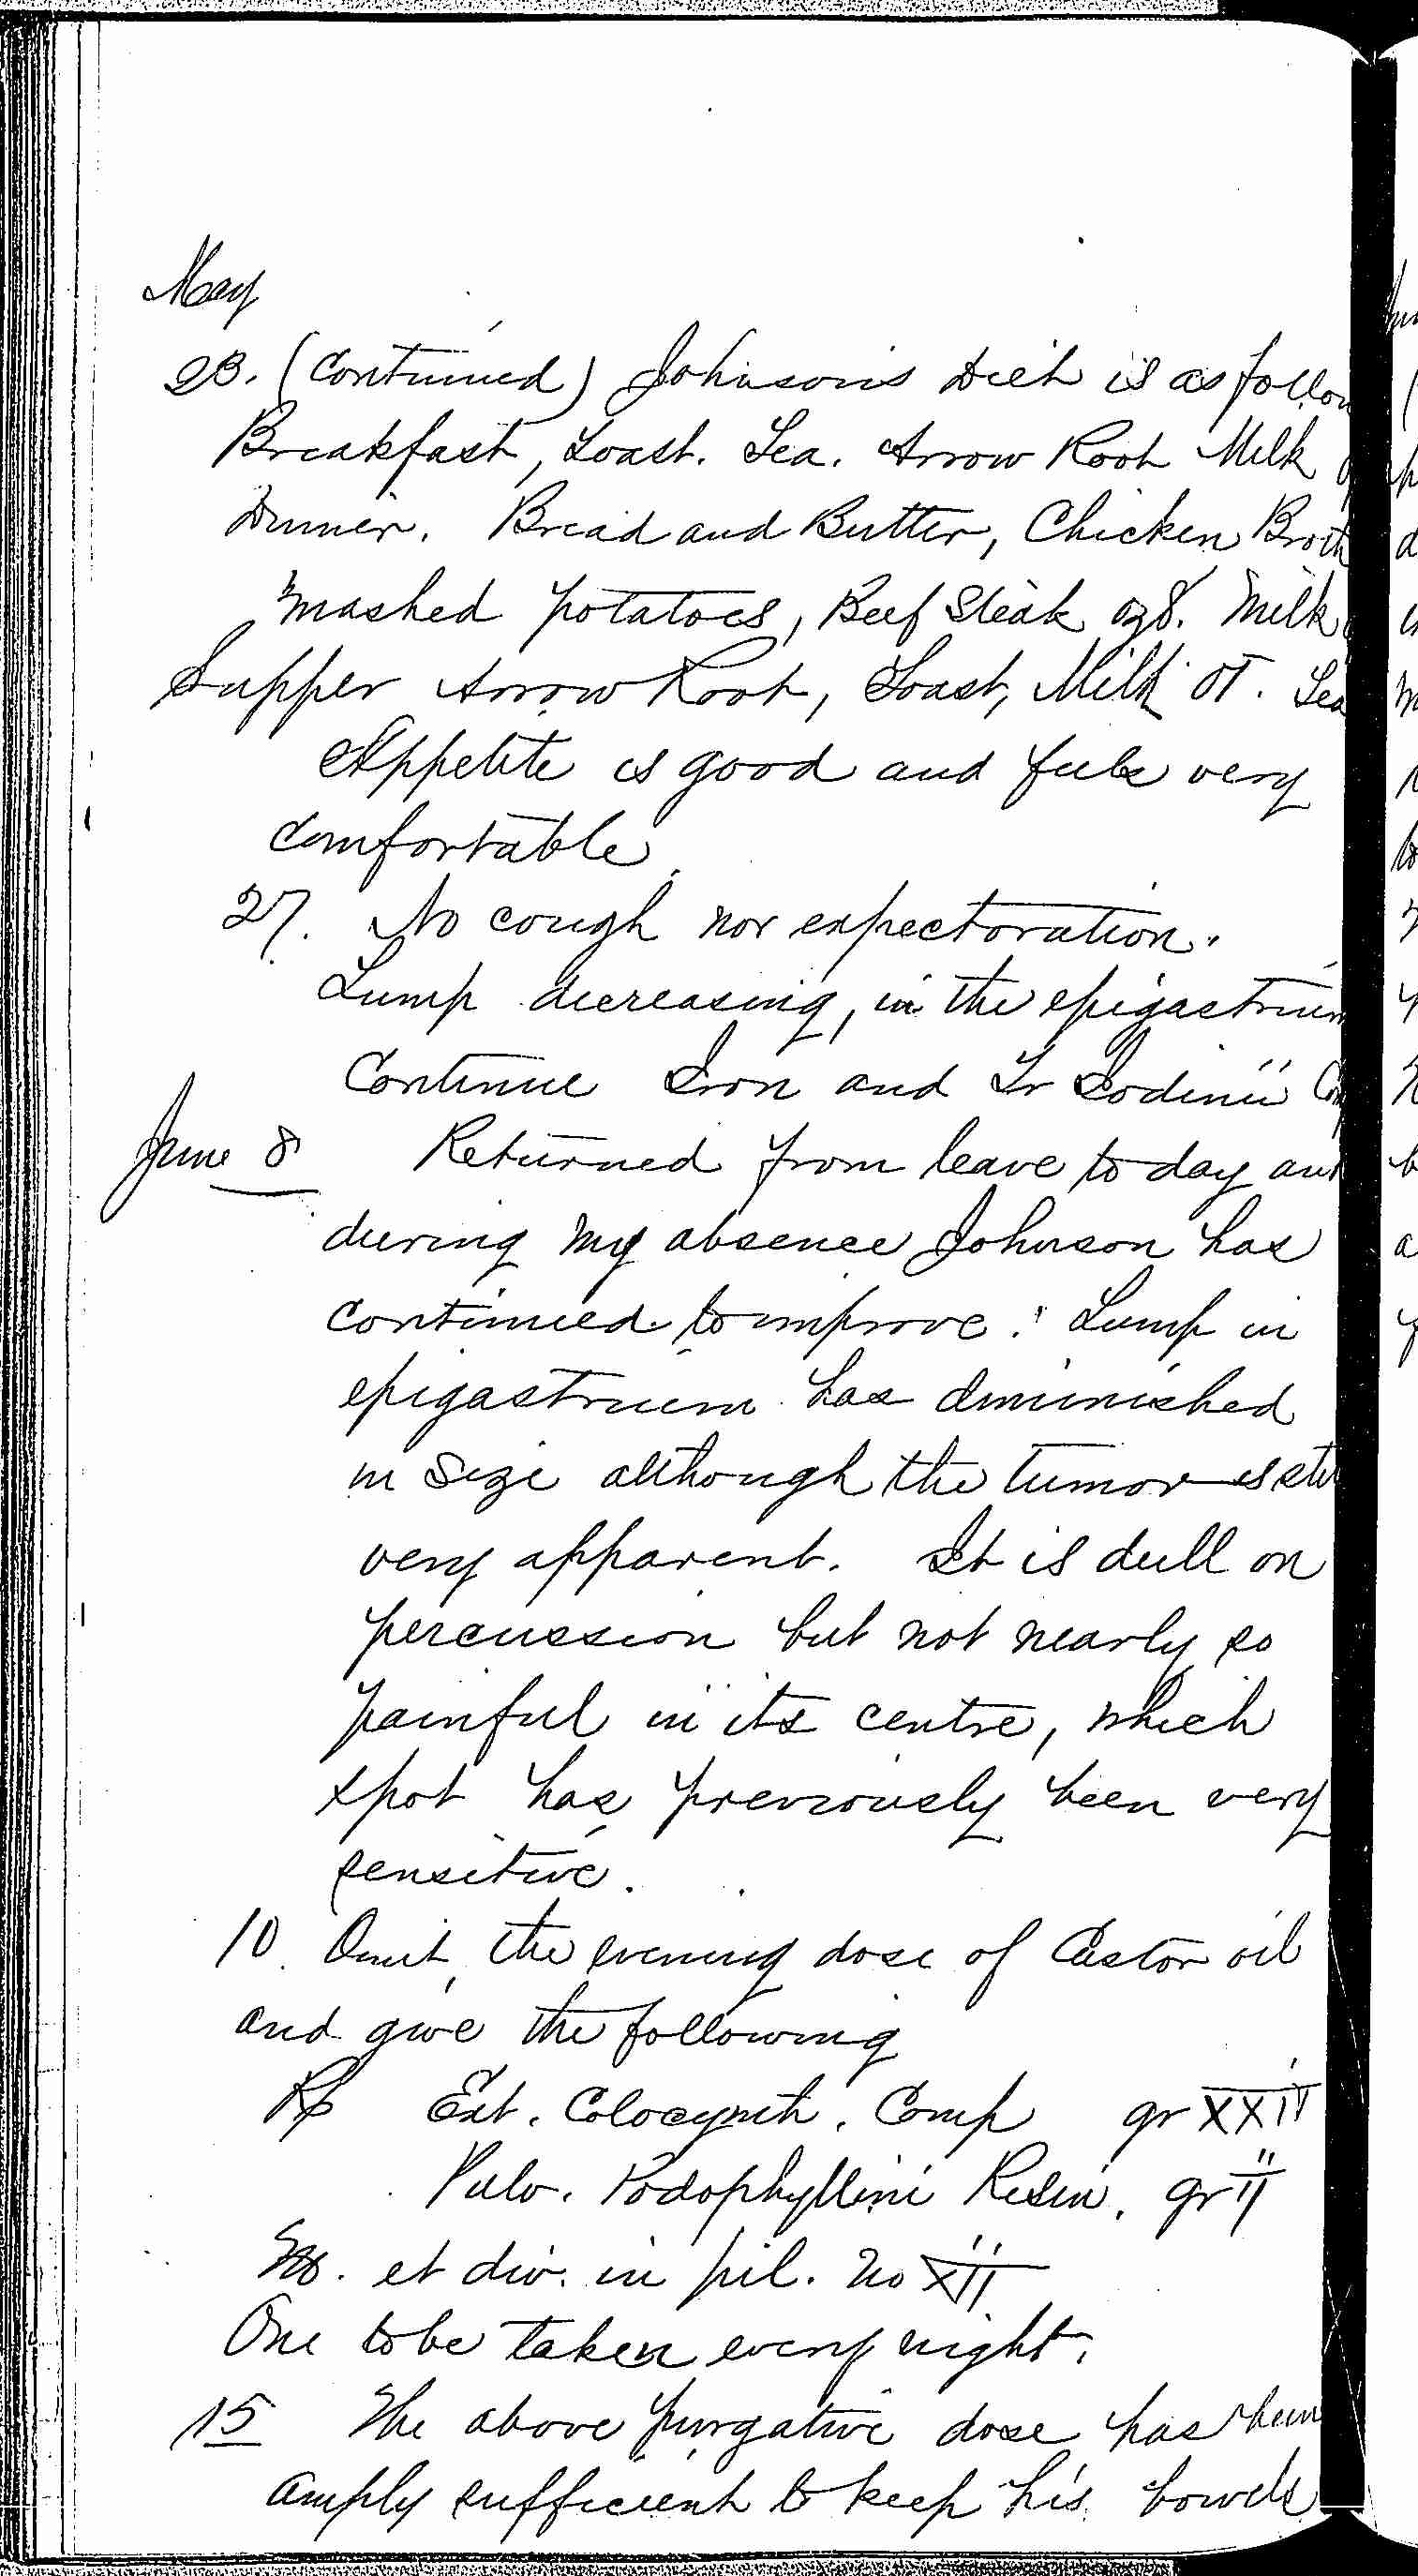 May
23. (Continued) Johnson's diet is as follow
Breakfast, Toast. Tea. Arrow Root Milk
Dinner. Bread and Butter, Chicken Broth
mashed potatoes, Beef Steak oz 8. Milk
Supper Arrow Root, Toast, Milk OT. Tea
Appetite is good and feels very
comfortable.
27. No cough nor expectoration.
Lump decreasing, in the epigastrium
Continue Iron and Tr Iodinii Com
June 8 Returned from leave to day and
during my absence Johnson has
continued to improve. Lump in
epigastrium has diminished
in size although the tumor is
very apparent. It is dull on
percussion but not nearly so
painful in its centre, which
spot has previously been very
sensitive.
10. Omit the evening dose of Castor oil
and give the following
Rx Ext. Colocynth. Comp gr XXIV
Pulv. Podophyllini Resin. gr II
M. et div. in pil. No XII
One to be taken every night.
15 The above purgative dose has been
amply sufficient to keep his bowels